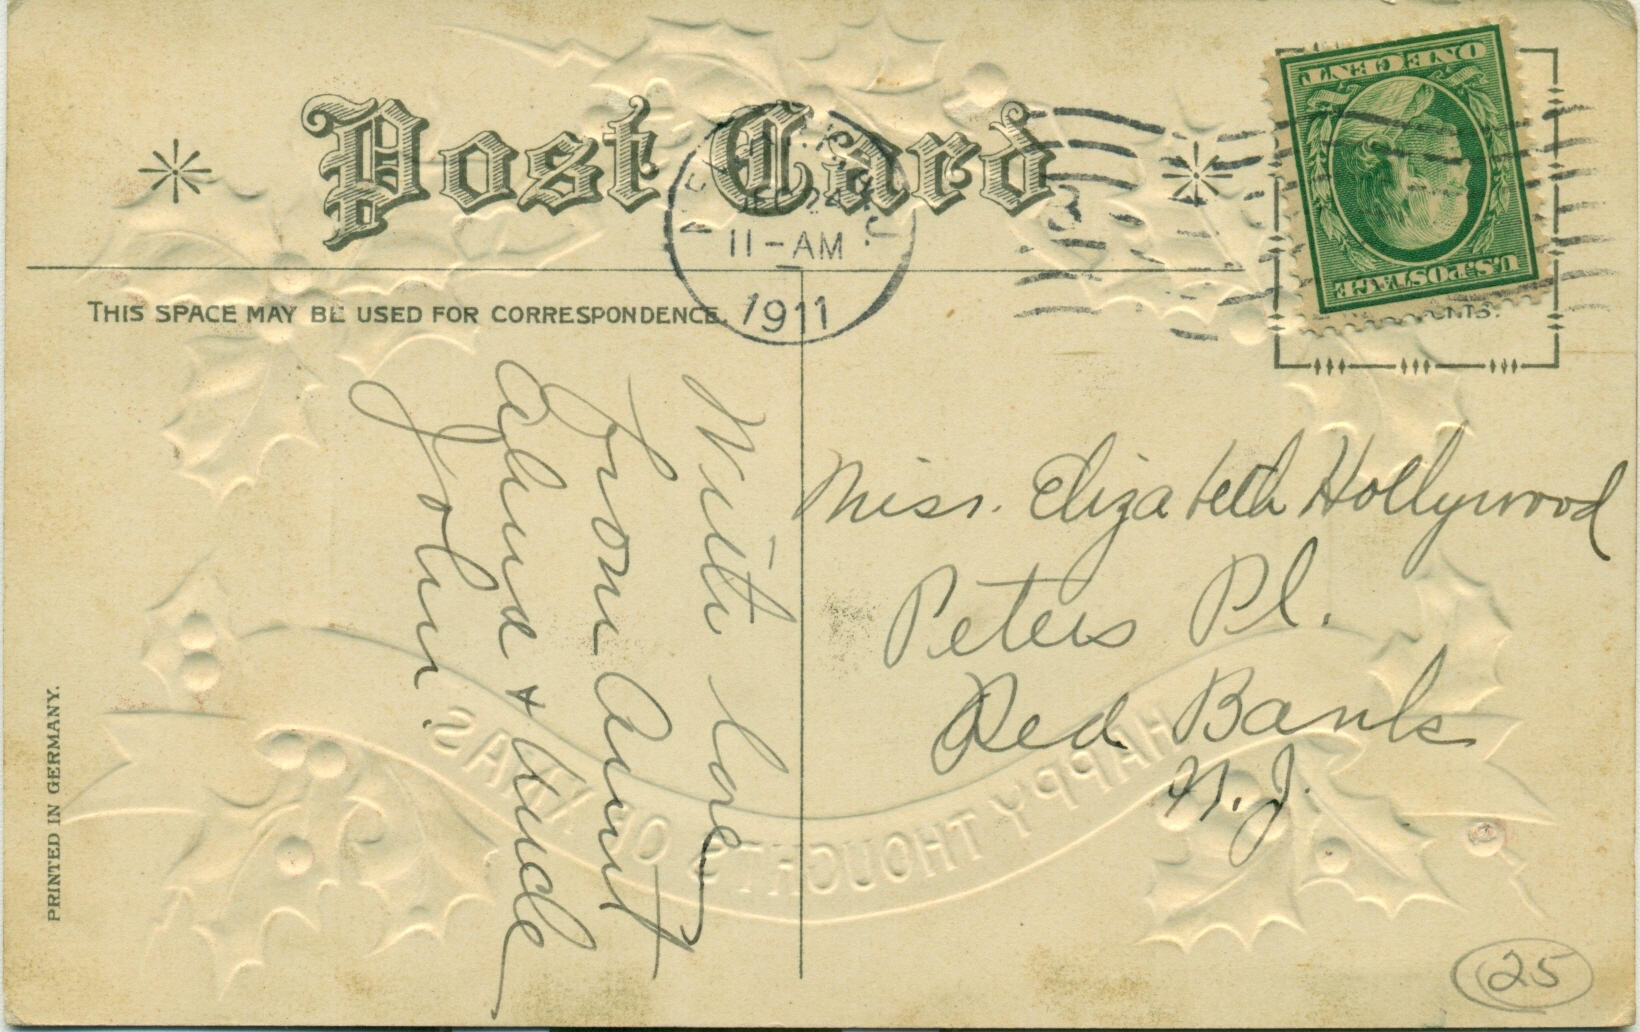 Post Card
11-AM
1911
ONE CENT
U.S. POSTAGE
THIS SPACE MAY BE USED FOR CORRESPONDENCE.
With love
From Aunt
& Uncle
John.
Miss. Elizabeth Hollywood
Peters Pl.
Red Bank
N. J.
HAPPY THOUGHTS OF XMAS
PRINTED IN GERMANY.
25